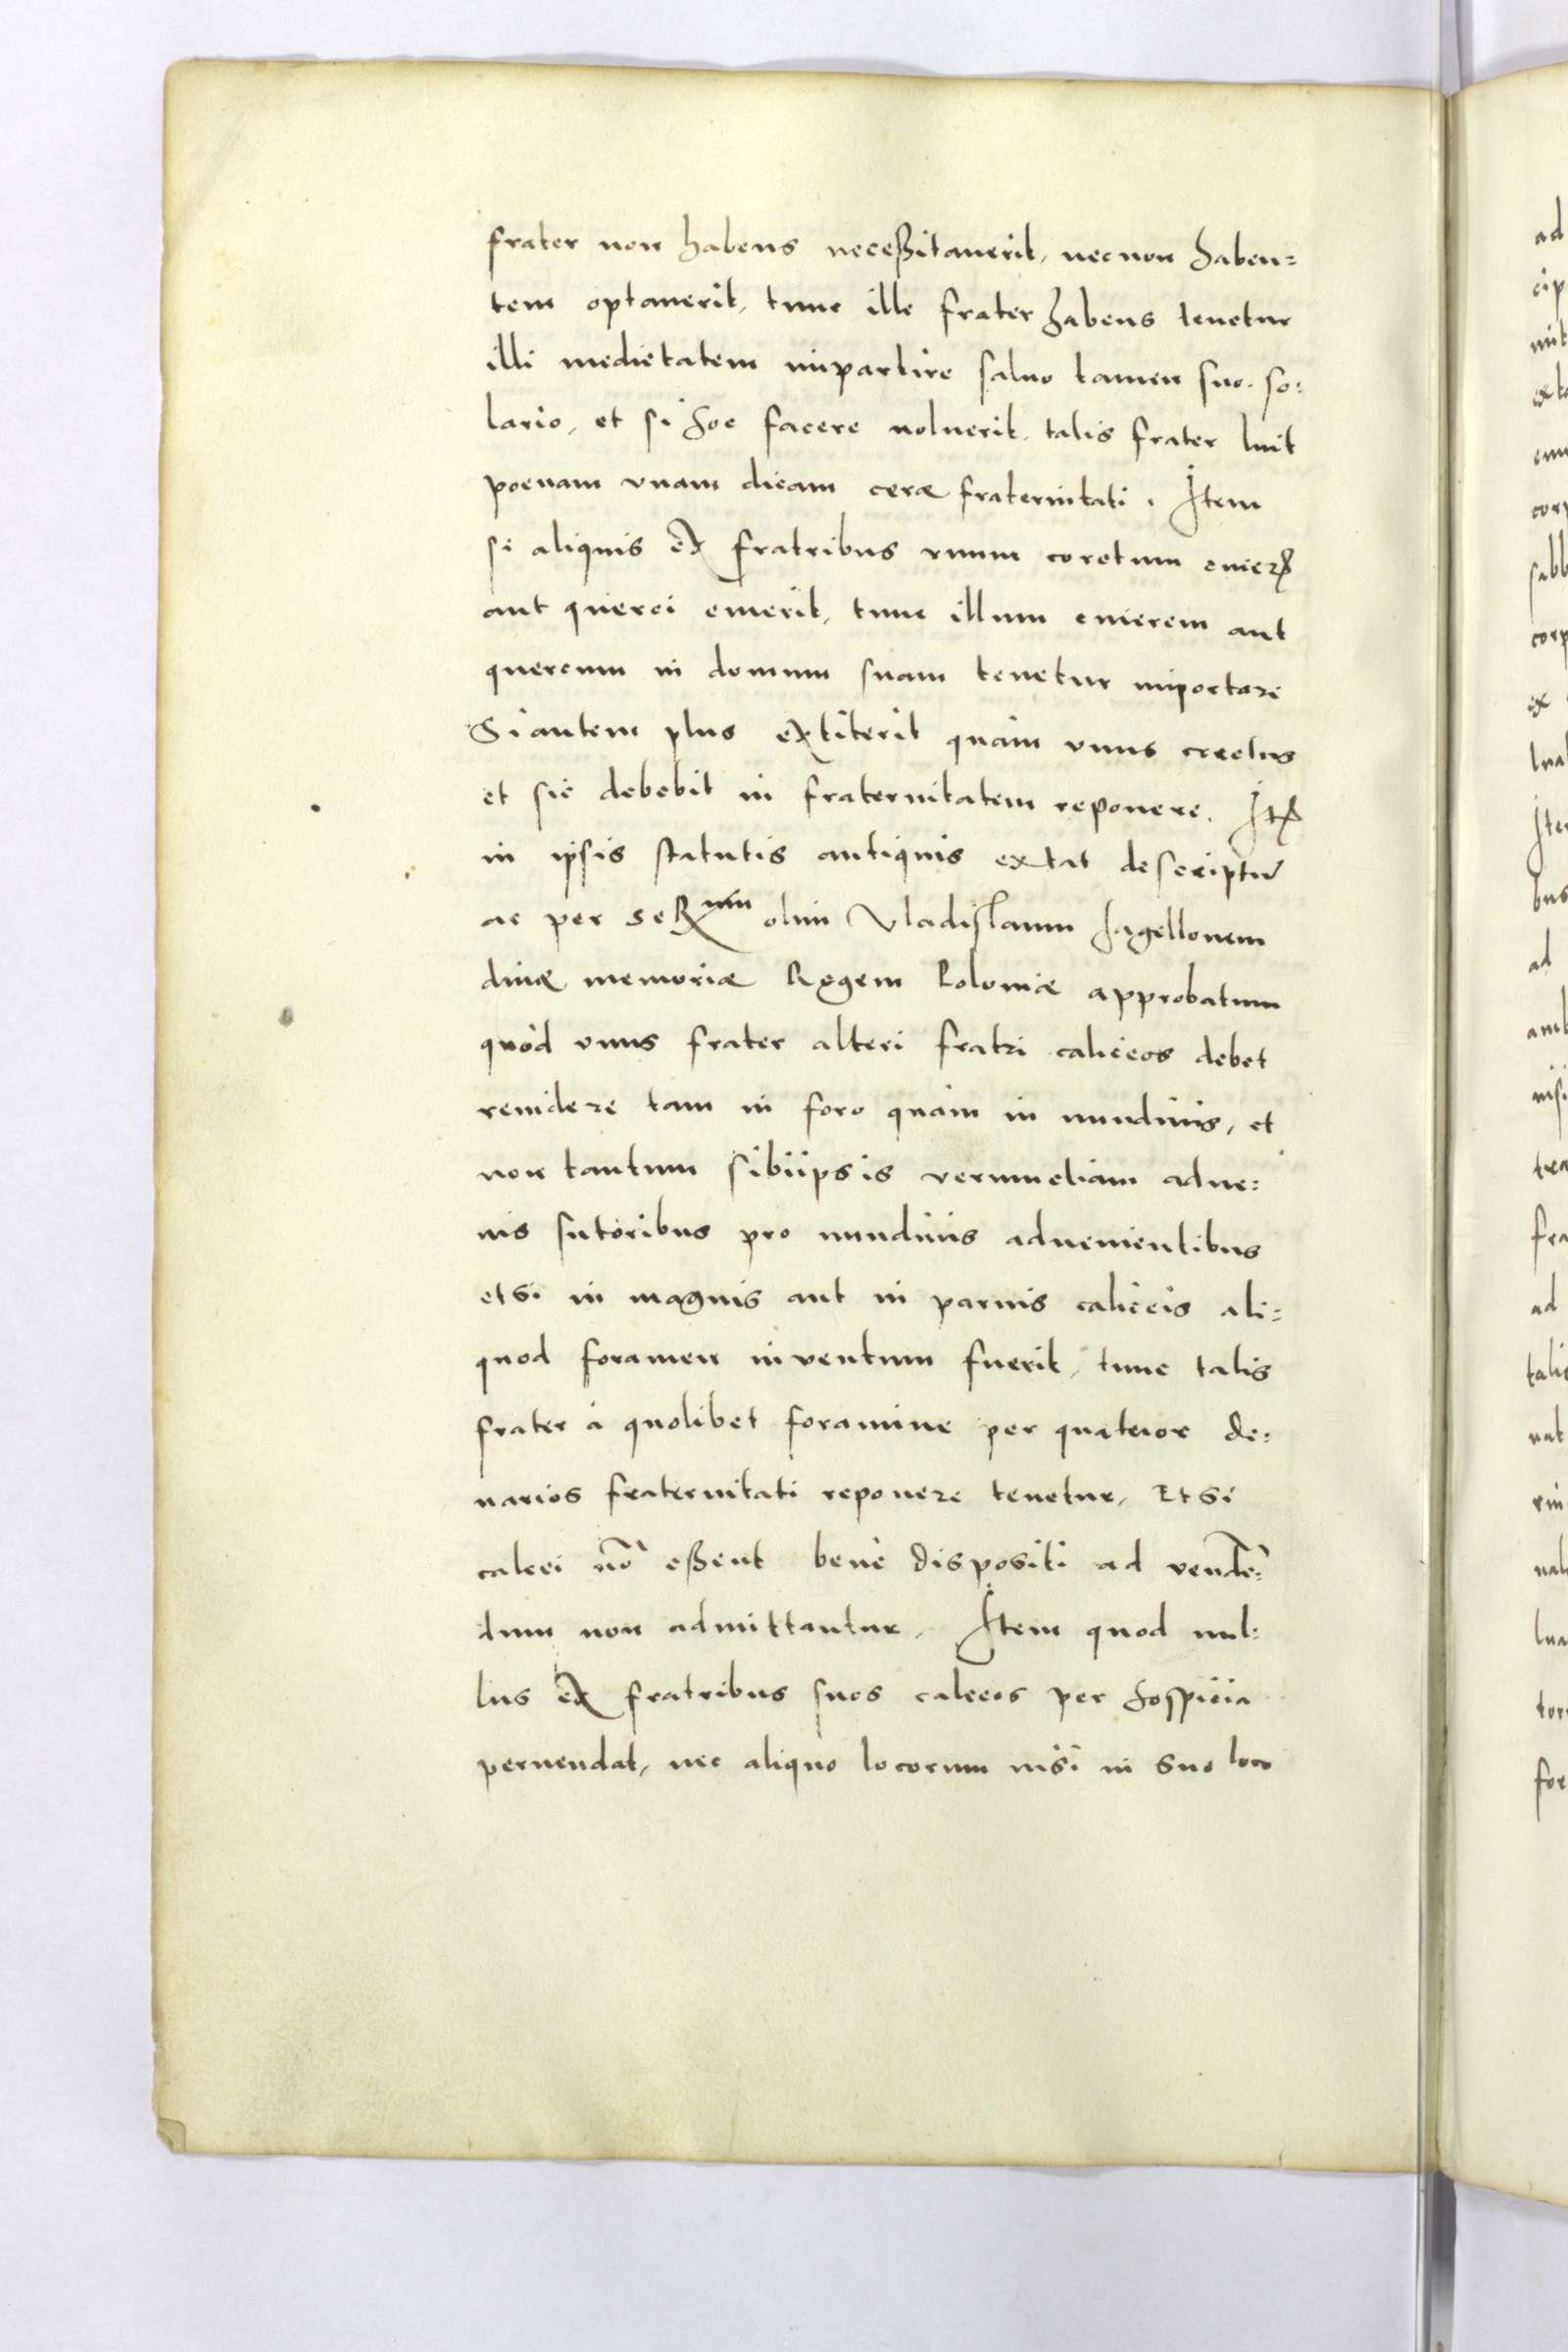 frater non habens neceßitauerit, nec non haben=
tem optauerit, tunc ille frater habens tenetur
illi medietatem impartire saluo tamen suo. so:
lario, et si hoc facere noluerit, talis frater luit
poenam vnam dicam ceræ fraternitati. Item
si aliquis ex fratribus vnum coretum
aut querci emerit, tunc illum cinerem aut
quercum in domum suam tenetur importare
Si autem plus extiterit quàm vnus coretus
et sic debebit in fraternitatem reponere. It
in ipsis statutis antiquis extat descriptū
ac per Ser mum olim Vladislaum Jagellonem
diuæ memoriæ Regem Poloniæ approbatum
quòd vnus frater alteri fratri calceos debet
reuidere tam in foro quàm in nundinis, et
non tantum sibiipsis verumetiam adue:
nis sutoribus pro nundinis aduenientibus
et si in magnis aut in paruis calceis ali:
quod foramen inventum fuerit, tunc talis
frater à quolibet foramine per quatuor de:
narios fraternitati reponere tenetur, Et si
calcei nō eßent benè dispositi ad vendē:
dum non admittantur. Item quod nul:
lus ex fratribus suos calceos per hospicia
peruendat, nec aliquo locorum nisi in suo loco
ad
cip
mit
corp
sabb
corp
ex
Ite
bus
ad
nisi
fra
ad
talis
for